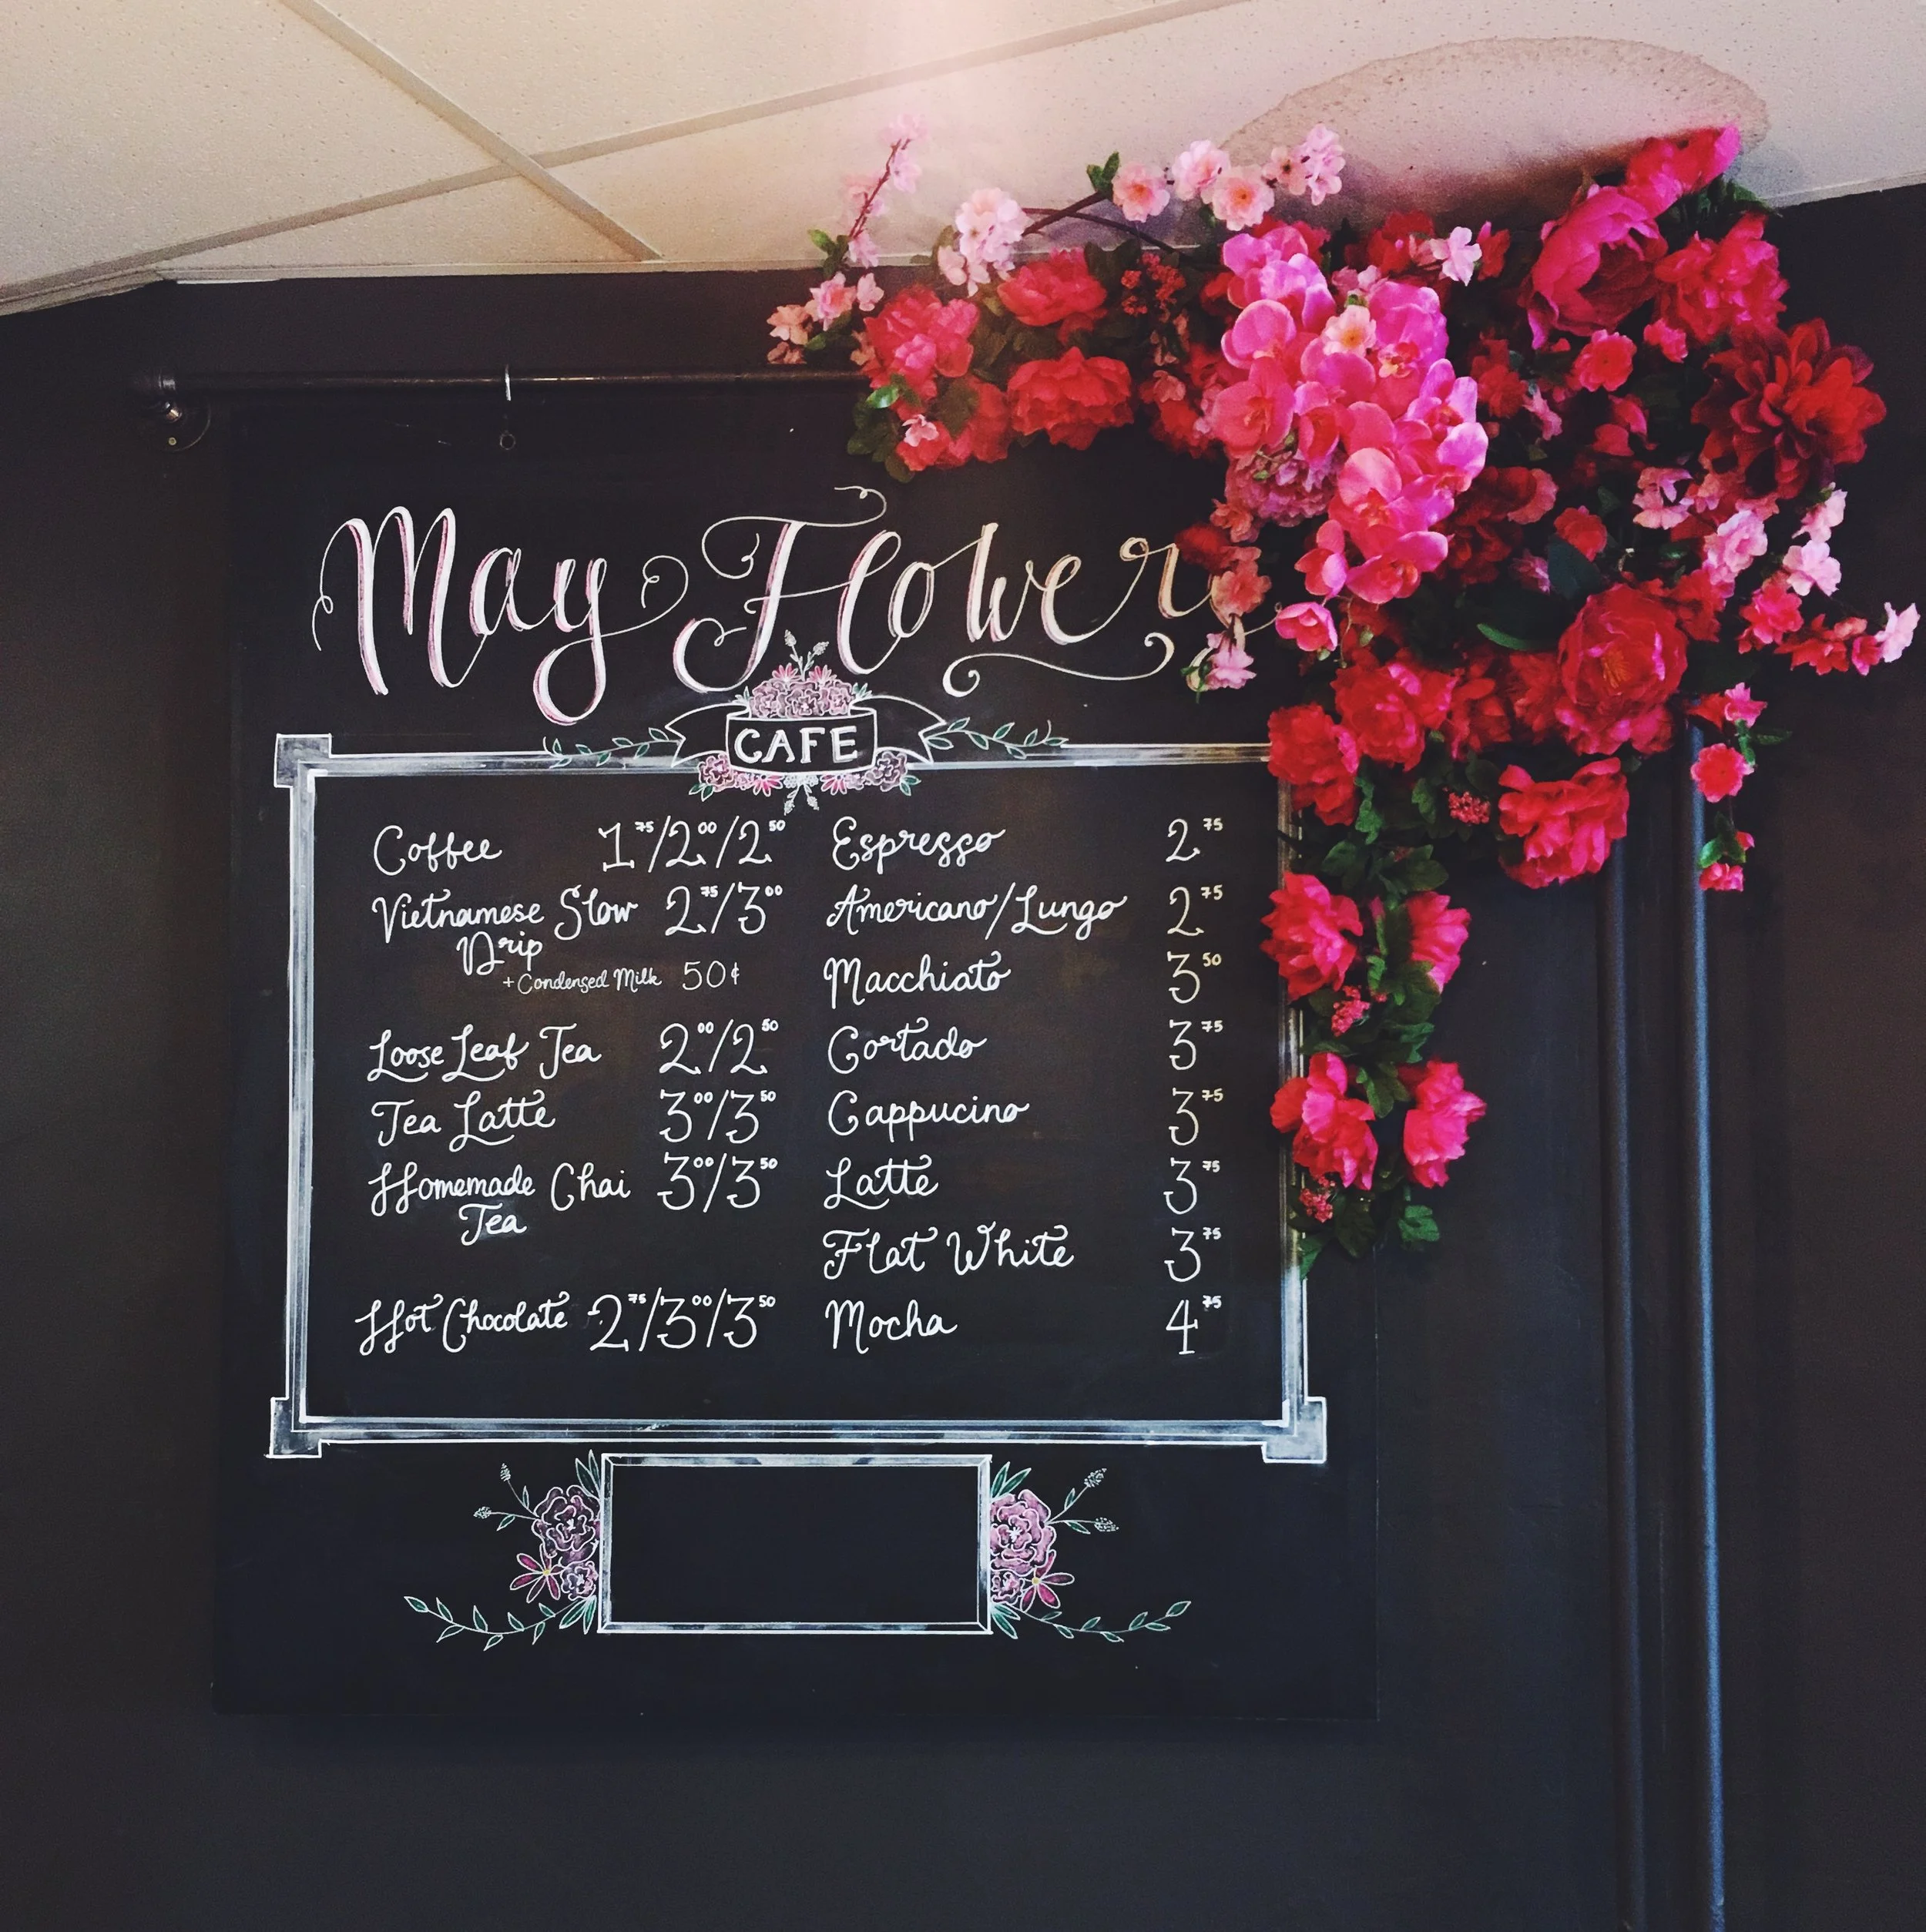 May Flower
CAFE
Coffee 1.75/2.00/2.50
Vietnamese Slow 2.75/3.00
Drip
+Condensed Milk 50¢
Loose Leaf Tea 2.00/2.50
Tea Latte 3.00/3.50
Homemade Chai 3.00/3.50
Tea
Hot Chocolate 2.75/3.00/3.50
Espresso 2.75
Americano/Lungo 2.75
Macchiato 3.50
Cortado 3.75
Cappucino 3.75
Latte 3.75
Flat White 3.75
Mocha 4.75